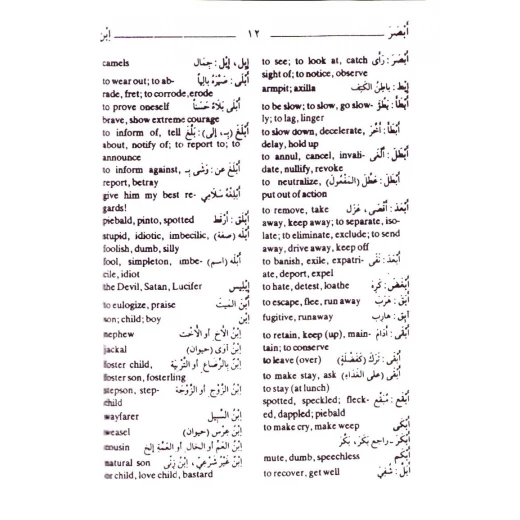 أَبْصَرَ ١٢ اِبْن
أَبْصَرَ : رَأَى to see; to look at, catch
sight of; to notice, observe
إِبْط : بَاطِنُ الكَتِف armpit; axilla
أَبْطَأَ : بَطُؤَ to be slow; to slow, go slow-
ly; to lag, linger
أَبْطَأَ : أَخَّرَ to slow down, decelerate,
delay, hold up
أَبْطَلَ : أَلْغَى to annul, cancel, invali-
date, nullify, revoke
أَبْطَلَ : عَطَّلَ (المَفْعُولَ) to neutralize,
put out of action
أَبْعَدَ : أَقْصَى ، عَزَلَ to remove, take
away, keep away; to separate, iso-
late; to eliminate, exclude; to send
away, drive away, keep off
أَبْعَدَ : نَفَى to banish, exile, expatri-
ate, deport, expel
أَبْغَضَ : كَرِهَ to hate, detest, loathe
أَبَقَ : هَرَبَ to escape, flee, run away
آبِق : هَارِب fugitive, runaway
أَبْقَى : أَدَامَ to retain, keep (up), main-
tain; to conserve
أَبْقَى : تَرَكَ (كَفَضْلَةٍ) to leave (over)
أَبْقَى (على الغَدَاءِ) to make stay, ask
to stay (at lunch)
أَبْقَع : مُبَقَّع spotted, speckled; fleck-
ed, dappled; piebald
أَبْكَى to make cry, make weep
أَبْكَرَ ـ راجع بَكَرَ ، بَكَّرَ
أَبْكَم mute, dumb, speechless
أَبَلَّ : شُفِيَ to recover, get well
إِبِل ، إِبْل : جِمَال camels
أَبْلَى : صَيَّرَهُ بَالِياً to wear out; to ab-
rade, fret; to corrode, erode
أَبْلَى بَلَاءً حَسَناً to prove oneself
brave, show extreme courage
أَبْلَغَ (بِـ ، إلى) : بَلَّغَ to inform of, tell
about, notify of; to report to; to
announce
أَبْلَغَ عن : وَشَى بِـ to inform against,
report, betray
أَبْلِغْهُ سَلَامِي give him my best re-
gards!
أَبْلَق : أَرْقَط piebald, pinto, spotted
أَبْلَه (صفة) stupid, idiotic, imbecilic,
foolish, dumb, silly
أَبْلَه (اسم) fool, simpleton, imbe-
cile, idiot
إِبْلِيس the Devil, Satan, Lucifer
أَبَّنَ المَيِّتَ to eulogize, praise
اِبْن son; child; boy
اِبْنُ الأَخِ أو الأُخْت nephew
اِبْنُ آوَى (حيوان) jackal
اِبْنٌ بِالرَّضَاعِ أو التَّرْبِيَة foster child,
foster son, fosterling
اِبْنُ الزَّوْجِ أو الزَّوْجَة stepson, step-
child
اِبْنُ السَّبِيل wayfarer
اِبْنُ عِرْس (حيوان) weasel
اِبْنُ العَمِّ أو الخَالِ أو العَمَّةِ إلخ cousin
اِبْنٌ غَيْرُ شَرْعِيّ ، اِبْنُ زِنًى natural son
or child, love child, bastard